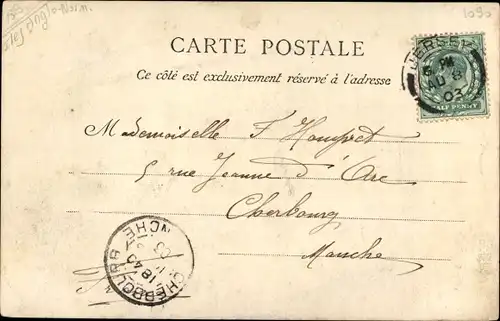 1090
CARTE POSTALE
Ce côté est exclusivement réservé à l'adresse
JERSEY
6 PM
AU 8
03
HALF PENNY
Mademoiselle F Hompret
5 rue Jeanne d'Arc
Cherbourg
Manche
CHERBOURG
MANCHE
18 40
03